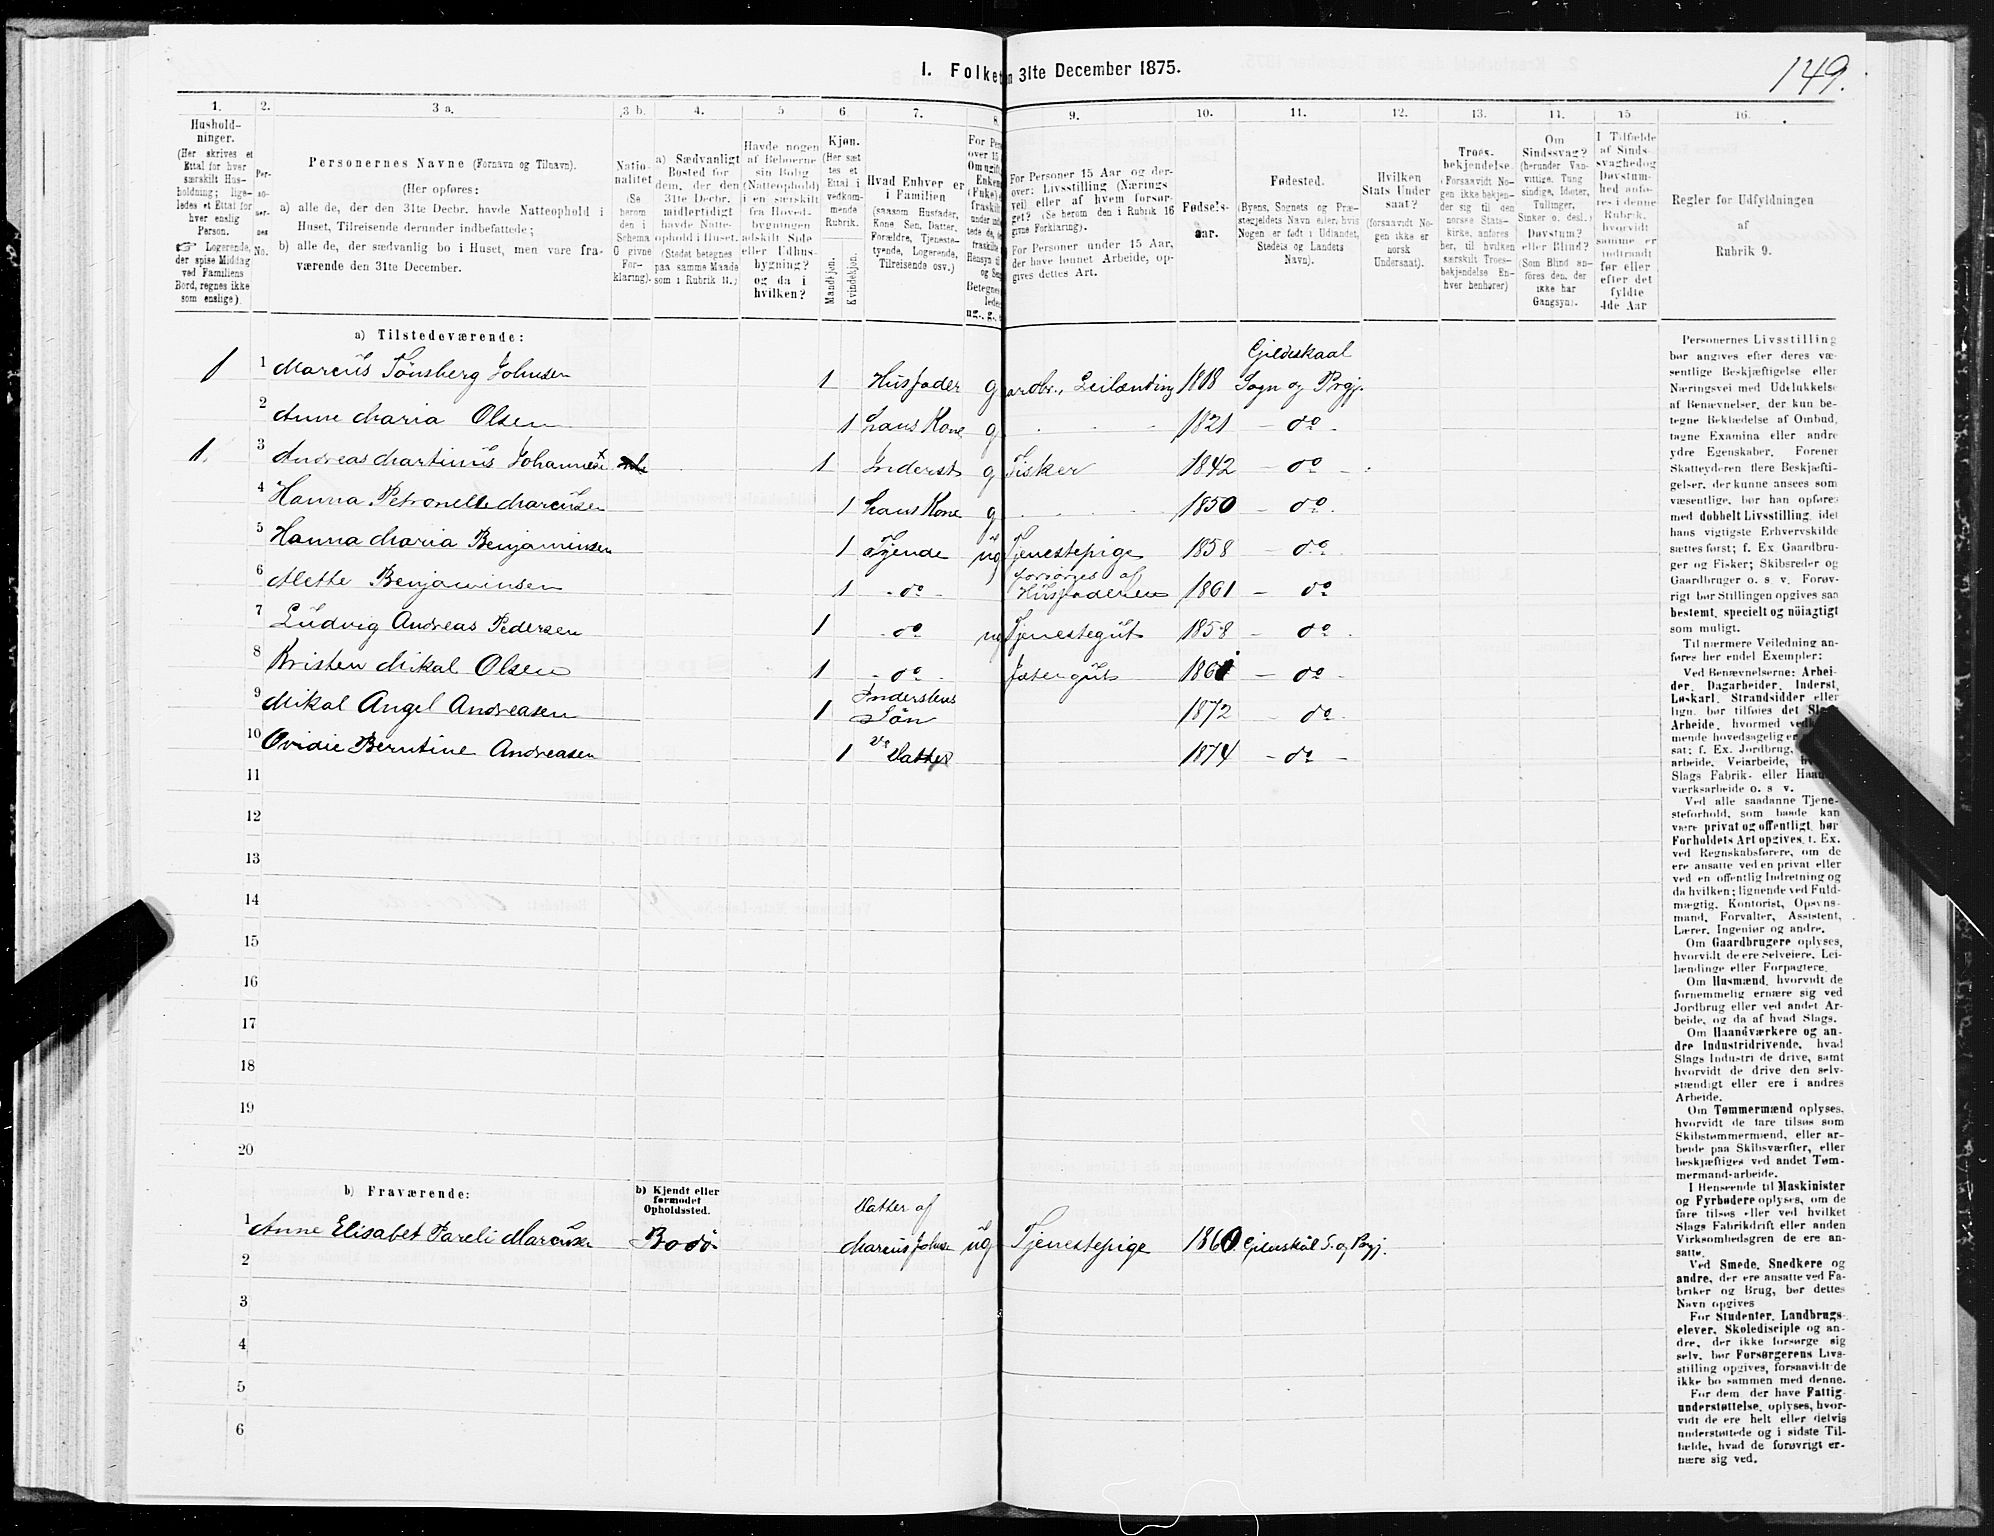 149.
I. Folket
n 31te December 1875.
1. 2. 3 a. 3 b. 4. 5 6 7. 8 9. 10. 11. 12. 13. 14. 15 16.
Hushold-
ninger.
(Her skrives et
Ettal for hver
særskilt Hus-
holdning; lige-
ledes et Ettal for
hver enslig
Person.
☞ Logerende,
der spise Middag
ved Familiens
Bord, regnes ikke
som enslige).
Per-
so-
ner-
nes
No.
Personernes Navne (Fornavn og Tilnavn).
(Her opføres:
a) alle de, der den 31te Decbr. havde Natteophold i
Huset, Tilreisende derunder indbefattede;
b) alle de, der sædvanlig bo i Huset, men vare fra-
værende den 31te December.
Natio-
nalitet
(Se
herom
den i
Schema
6 givne
For-
klaring).
a) Sædvanligt
Bosted for
dem, der den
31te Decbr.
midlertidigt
havde Natte-
ophold i Huset.
(Stedet betegnes
paa samme Maade
som i Rubrik 11.)
Havde nogen
af Beboerne
sin Bolig
(Natteophold)
i en særskilt
fra Hoved-
bygningen
adskilt Side-
eller Udhus-
bygning?
og da i
hvilken?
Kjøn.
(Her sæt
tes et
Ettal i
vedkom-
mende
Rubrik.
Mandkjøn.
Kvindekjøn.
Hvad Enhver er
i Familien
(saasom Husfader,
Kone Søn, Datter,
Forældre, Tjeneste-
tyende, Logerende,
Tilreisende osv.)
For Pers
over 15
Om ugift
Enkem
(Enke) el
fraskilt
ug., g., e
For Personer 15 Aar og der-
over: Livsstilling (Nærings
vei) eller af hvem forsør-
get? (Se herom den i Rubrik 16
givne Forklaring).
For Personer under 15 Aar,
der have lønnet Arbeide, op-
gives dettes Art.
Fødsels-
aar.
Fødested.
(Byens, Sognets og Præ-
stegjeldets Navn eller, hvis
Nogen er født i Udlandet,
Stedets og Landets
Navn).
Hvilken
Stats Under
saat?
(forsaavidt No-
gen ikke er
norsk
Undersaat).
Troes-
bekjendelse.
(Forsaavidt No-
gen ikke bekjen-
der sig til den
norske Stats-
kirke, anføres
her, til hvilken
særskilt Troes-
bekjendelse En-
hver henhører)
Om
Sindssvag?
(herunder Van-
vittige, Tung
sindige, Idioter,
Tullinger,
Sinker o. desl.)
Døvstum?
eller Blind?
(Som Blind an-
føres den, der
ikke har
Gangsyn).
I Tilfælde
af Sinds-
svaghedog
Døvstum-
hed anfø-
res i denne
Rubrik,
hvorvidt
samme er
indtraadt
før eller
efter det
fyldte
4de Aar
Regler for Udfyldningen
af
Rubrik 9.
a) Tilstedeværende:
Gildeskaal
1 1 Marcus Tönsberg Johnsen 1 Husfader g ardbr., Leilænding 1818 Sogn og Prgj.
2 Anne Maria Olsen 1 hans Kone g 1821 - do -
1. 3 Andreas Martinus Johannes 1 Inderst g Fisker 1842 - do -
4 Hanna Petronelle Marcusen 1 hans Kone g 1850 - do -
5 Hanna Maria Benjaminsen 1 Tjende ug Tjenestepige 1858 - do -
forsörges af
6 Mette Benjaminsen 1 - do - Husfaderen 1861 - do
7 Ludvig Andreas Pedersen 1 - do - ug Tjenestegut 1858 - do
8 Kristen Mikal Olsen 1 - do - fostergut 1861 - do
Inderstens
9 Mikal Angel Andreasen 1 Sön 1872 - do -
10 Ovidie Berntine Andreasen 1 Datter 1874 - do -
11
12
13
14
15
16
17
18
19
20
b) Fraværende:
b) Kjendt eller
formodet
Opholdssted.
Datter af
1 Anne Elisabet Pareli Marcusen Bodö Marcus Johnse ug Tjenestepige 1860 Gildeskål S. og Prgj.
2
3
4
5
6
Personernes Livsstilling
bør angives efter deres væ-
sentlige Beskjæftigelse eller
Næringsvei med Udelukkelse
af Benævnelser, der kun be-
tegne Beklædelse af Ombud,
tagne Examina eller andre
ydre Egenskaber. Forener
Skatteyderen flere Beskjæfti-
gelser, der kunne ansees som
væsentlige, bør han opføres
med dobbelt Livsstilling, idet
hans vigtigste Erhvervskilde
sættes først; f. Ex Gaardbru-
ger og Fisker; Skibsreder og
Gaardbruger o. s. v. Forøv-
rigt bør Stillingen opgives saa
bestemt, specielt og nöiagtigt
som muligt.
Til nærmere Veiledning an-
føres her endel Exempler:
Ved Benævnelserne: Arbei-
der, Dagarbeider, Inderst,
Løskarl, Strandsidder eller
lign. bør tilføies det Slags
Arbeide, hvormed vedk
mende hovedsagelig er
sat; f. Ex. Jordbrug,
arbeide, Veiarbeide, hv
Slags Fabrik- eller Haand
værksarbeide o. s v.
Ved alle saadanne Tjene-
steforhold, som baade kan
være privat og offentligt, bør
Forholdets Art opgives, t. Ex.
ved Regnskabsførere, om de
ere ansatte ved en privat eller
ved en offentlig Indretning og
da hvilken; lignende ved Fuld-
mægtig, Kontorist, Opsyns-
mand, Forvalter, Assistent,
Lærer, Ingeniør og andre.
Om Gaardbrugere oplyses,
hvorvidt de ere Selveiere, Lei-
lændinge eller Forpagtere.
Om Husmænd, hvorvidt de
fornemmelig ernære sig ved
Jordbrug eller ved andet Ar-
beide, og da af hvad Slags.
Om Haandværkere og an-
dre Industridrivende, hvad
Slags Industri de drive, samt
hvorvidt de drive den selv-
stændigt eller ere i andres
Arbeide.
Om Tømmermænd oplyses,
hvorvidt de fare tilsøs som
Skibstømmermænd, eller ar-
beide paa Skibsværfter, eller
beskjæftiges ved andet Tøm-
mermand-arbeide.
I Henseende til Maskinister
og Fyrbødere oplyses, om de
fare tilsøs eller ved hvilket
Slags Fabrikdrift eller anden
Virksomhedsgren de ere an-
satte.
Ved Smede, Snedkere og
andre, der ere ansatte ved Fa-
briker og Brug, bør dettes
Navn opgives
For Studenter, Landbrugs-
elever, Skoledisciple og an-
dre, der ikke forsørge sig
selv, bør Forsørgerens Livs-
stilling opgives, forsaavidt de
ikke bo sammen med denne.
For dem, der have Fattig-
understøttelse, oplyses, hvor-
vidt de ere helt eller delvis
understøttede og i sidste Til-
fælde, hvad de forøvrigt er-
nære sig ved.